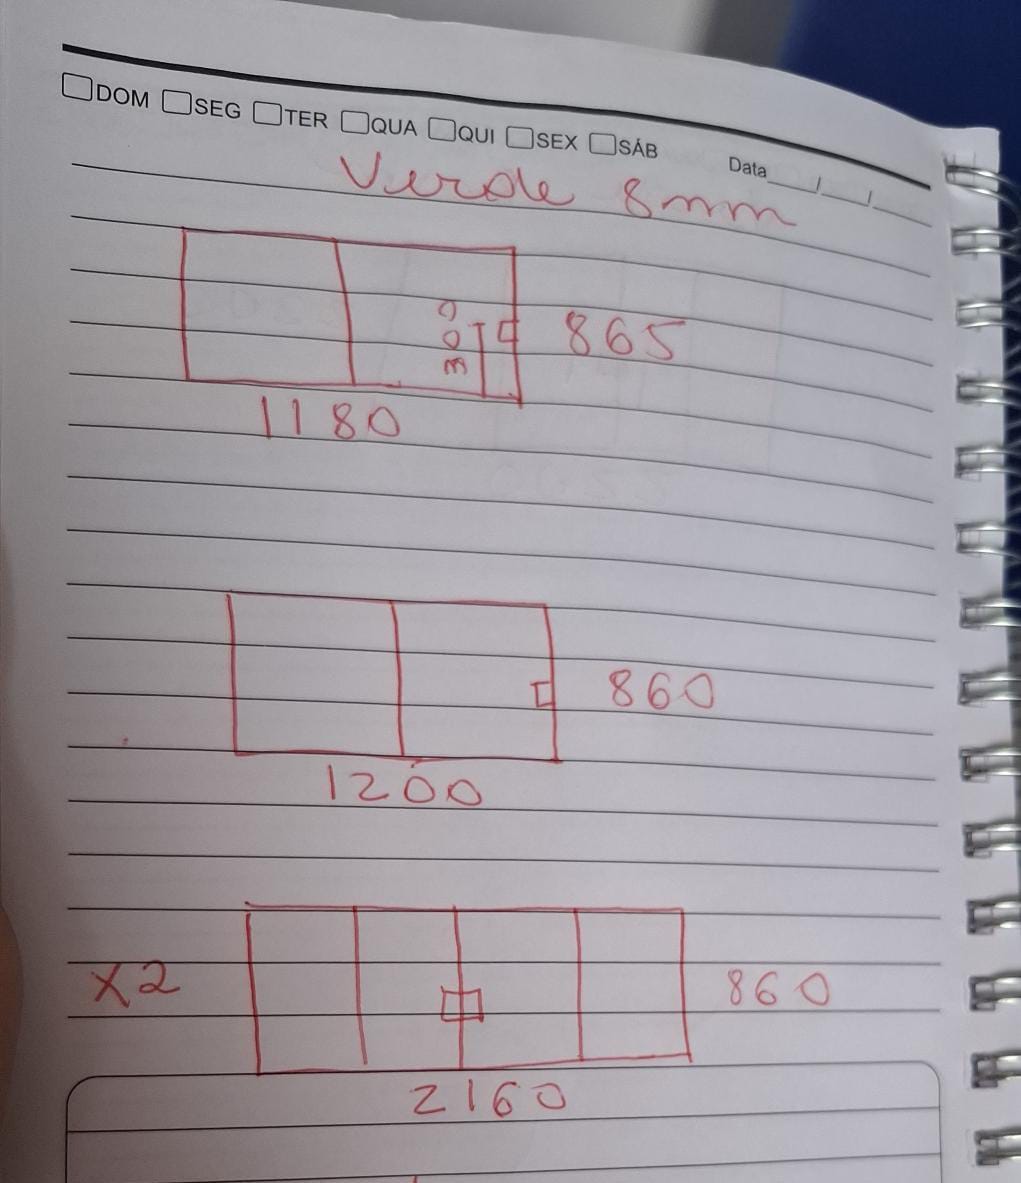 DOM SEG TER QUA QUI SEX SÁB Data __/__/__
Verde 8mm
300
865
1180
860
1200
X2
860
2160